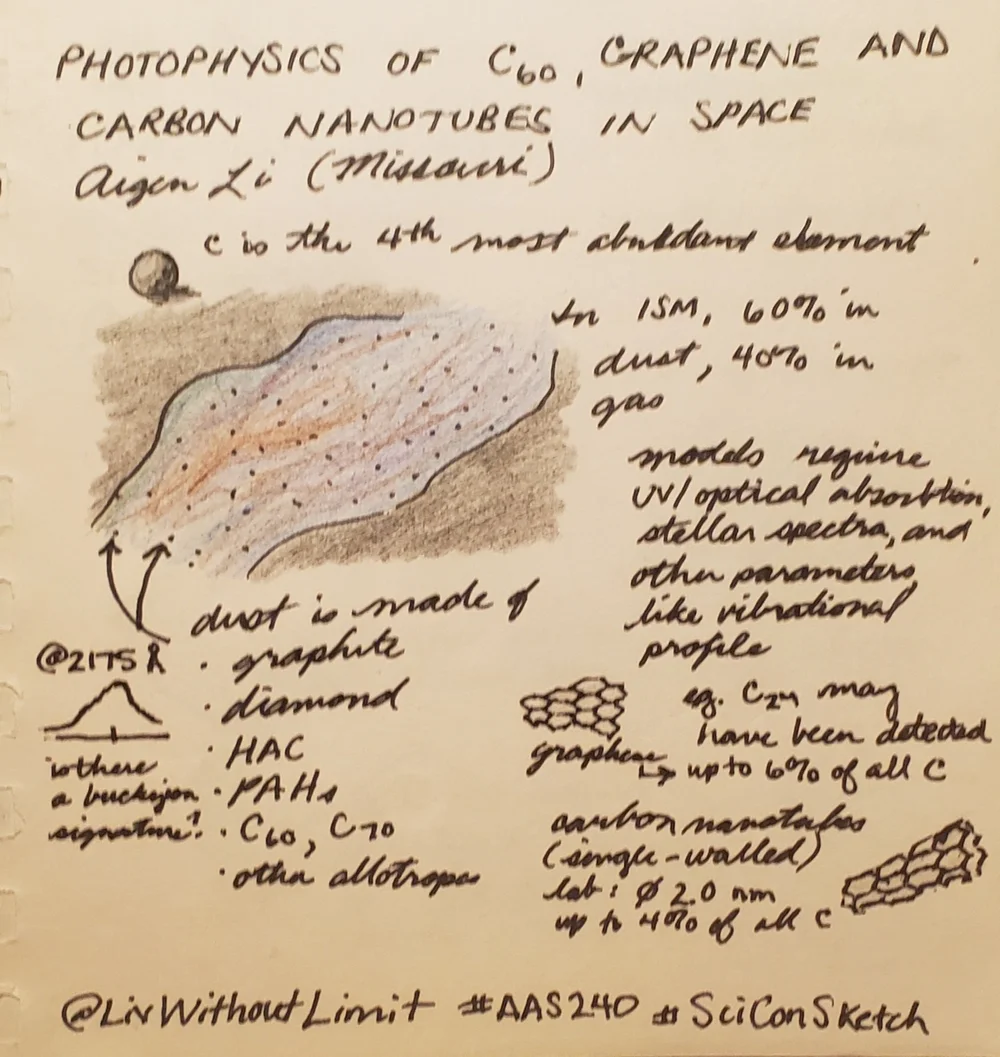 PHOTOPHYSICS OF C60, GRAPHENE AND
CARBON NANOTUBES IN SPACE
Aigen Li (Missouri)
C is the 4th most abundant element
In ISM, 60% in
dust, 40% in
gas
models require
UV/optical absorbtion,
stellar spectra, and
other parameters
like vibrational
profile
dust is made of
· graphite
· diamond
· HAC
· PAHs
· C60, C70
· other allotropes
@2175 Å
is there
a buckyon
signature?
graphene
eg. C24 may
have been detected
↳ up to 6% of all C
carbon nanotubes
(single-walled)
lab: ø 2.0 nm
up to 4% of all C
@LivWithoutLimit #AAS240 #SciConSketch